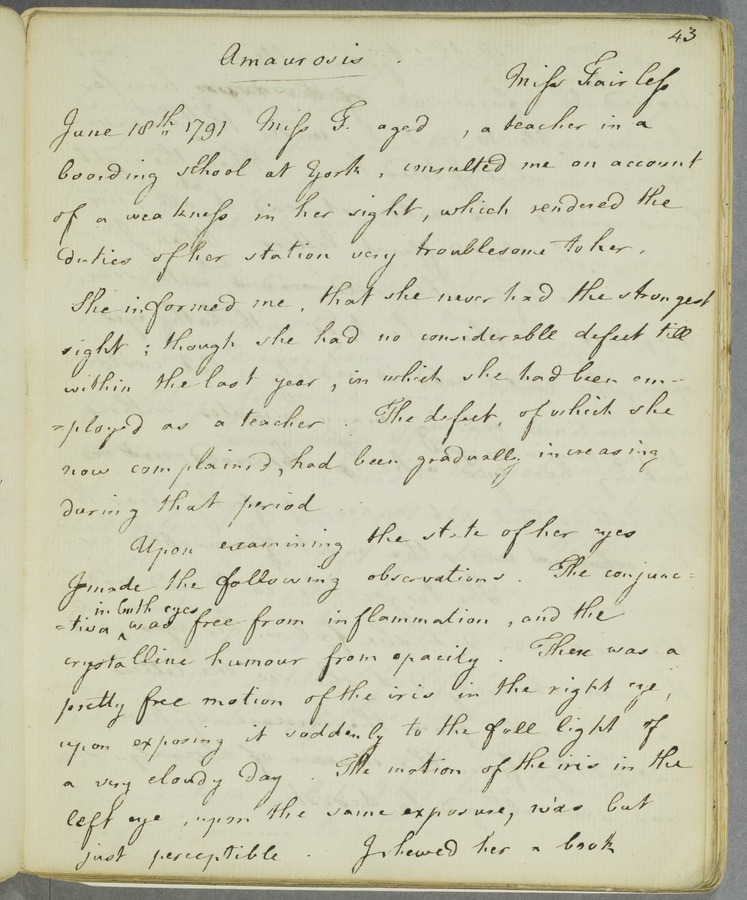 43
Amaurosis.
Miss Fairless
June 18th 1791 Miss F. aged , a teacher in a
boarding school at York, consulted me on account
of a weakness in her sight, which rendered the
duties of her station very troublesome to her.
She informed me, that she never had the strongest
sight; though she had no considerable defect till
within the last year, in which she had been em-
=ployed as a teacher. The defect, of which she
now complained, had been gradually increasing
during that period.
Upon examining the state of her eyes
I made the following observations. The conjunc=
in both eyes
=tiva ^ was free from inflammation, and the
crystalline humour from opacity. There was a
pretty free motion of the iris in the right eye,
upon exposing it suddenly to the full light of
a very cloudy day. The motion of the iris in the
left eye, upon the same exposure, was but
just perceptible. I shewed her a book